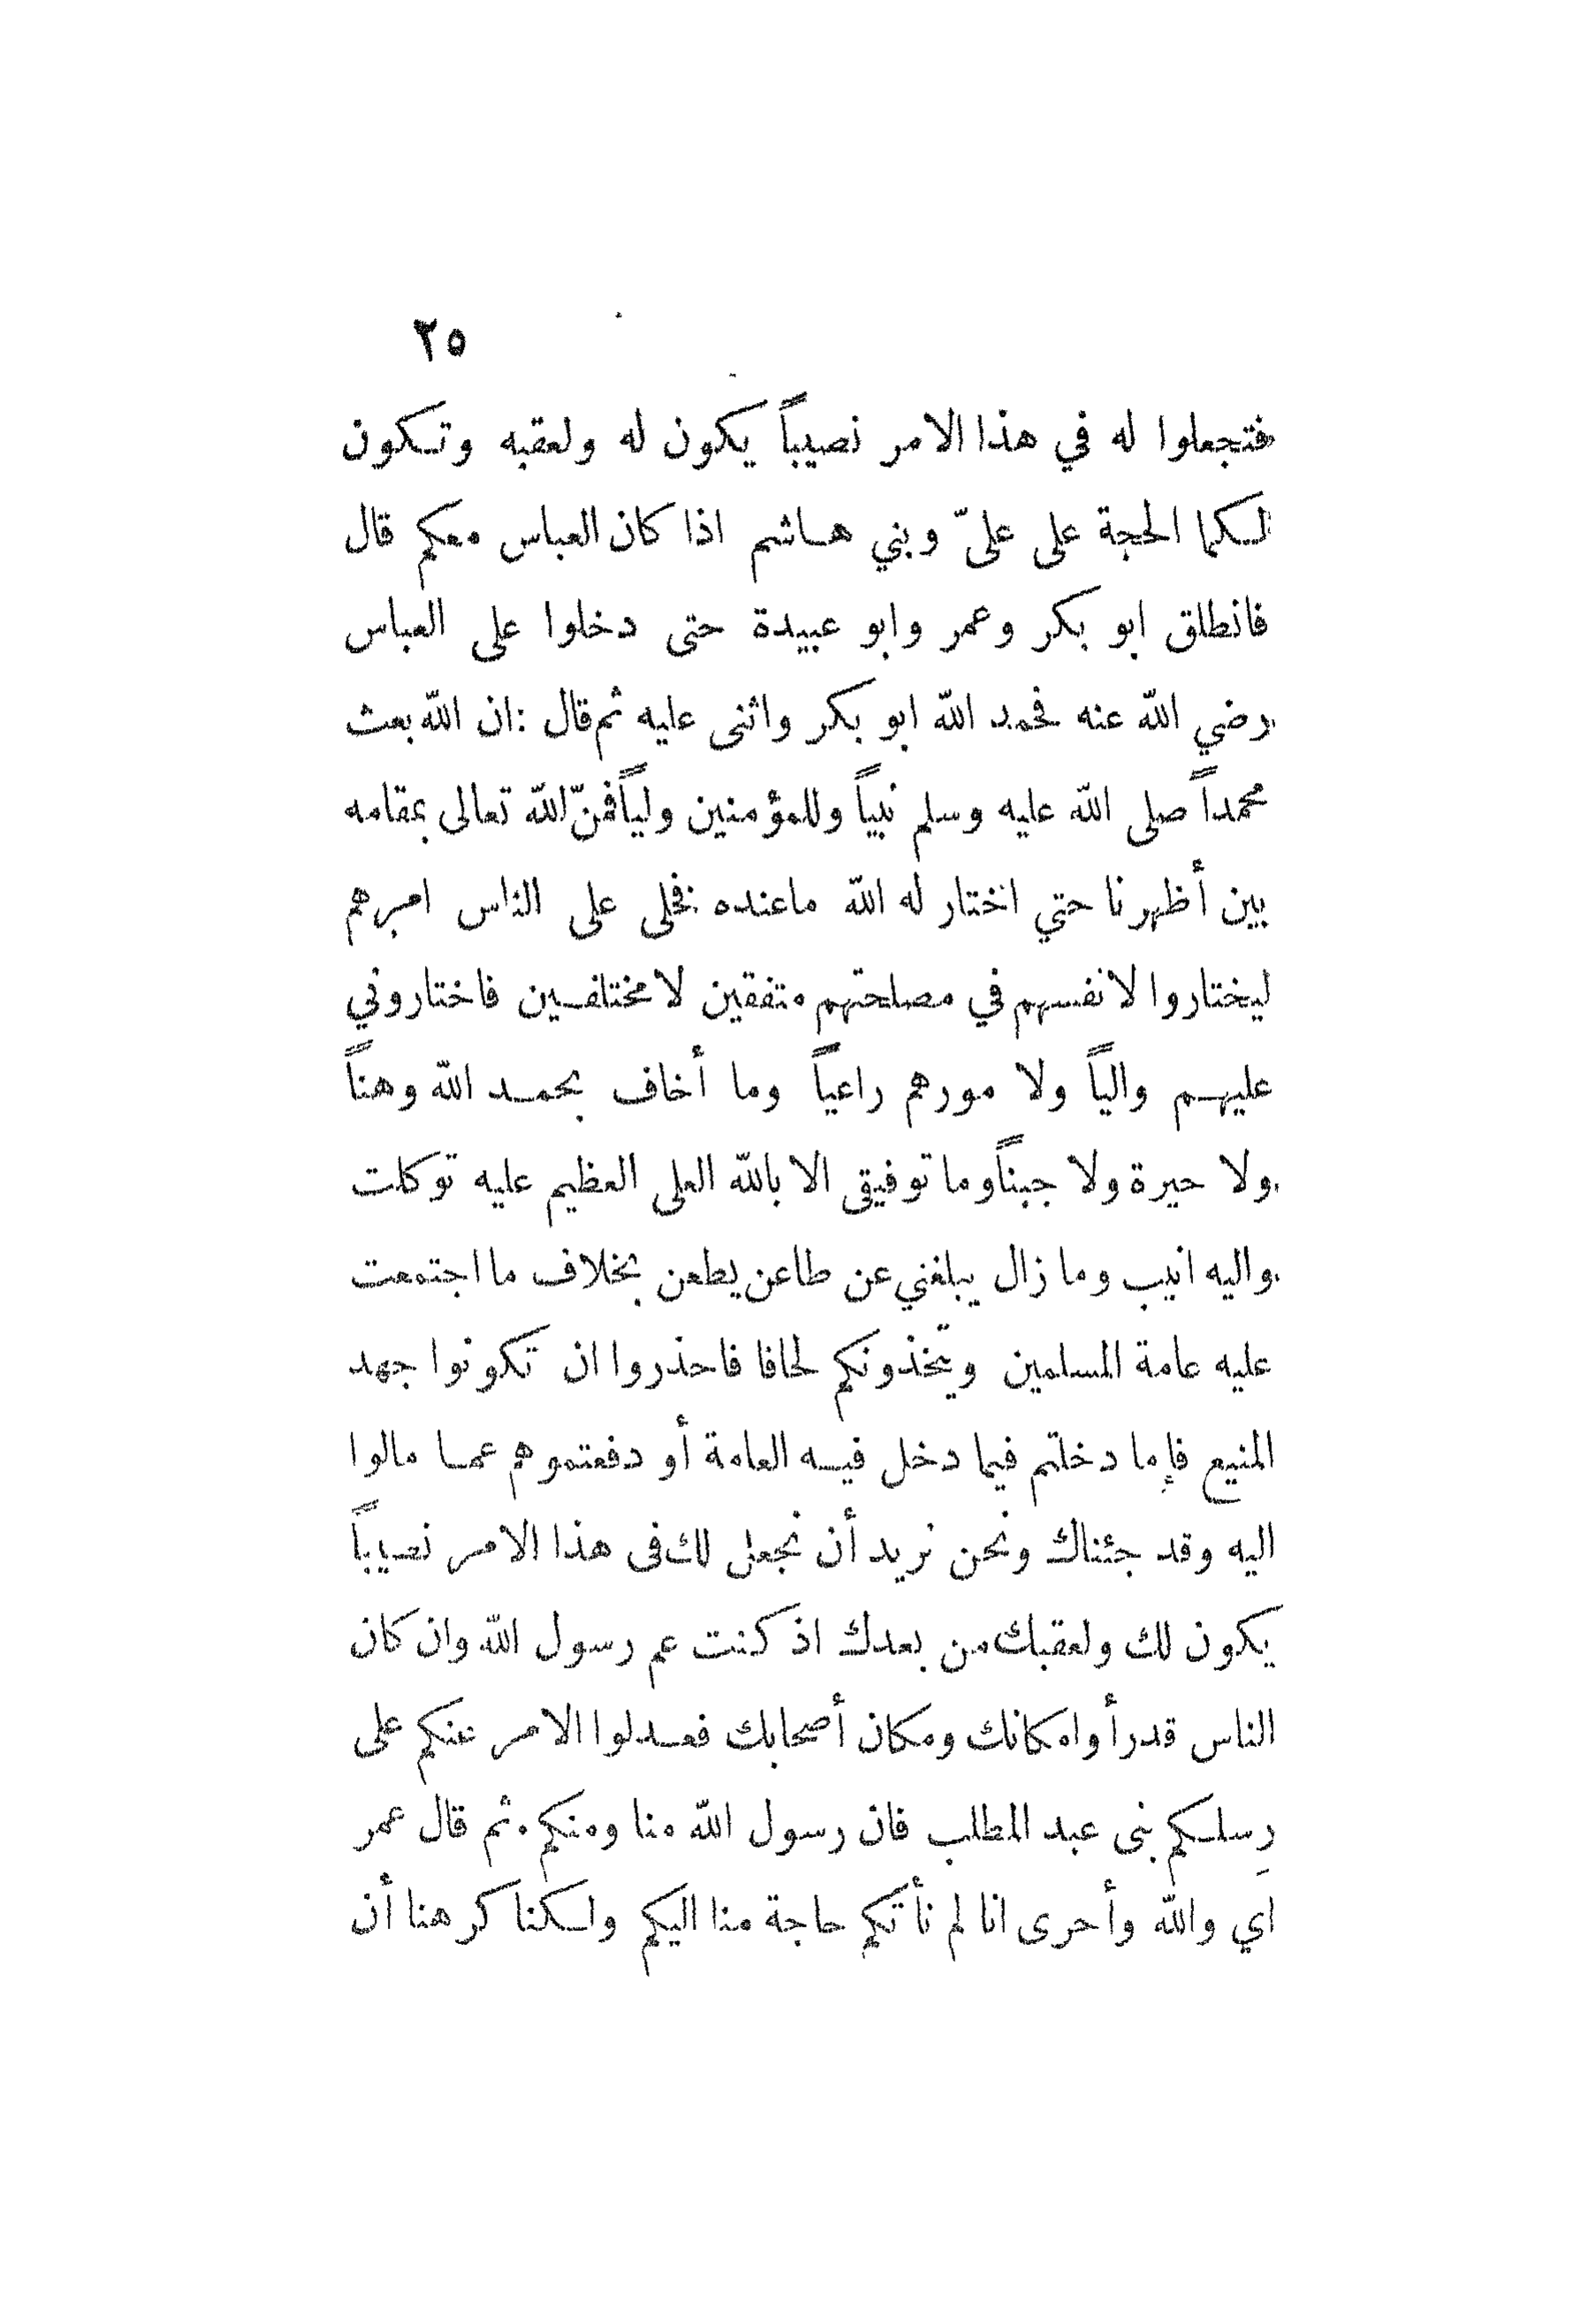 ٢٥
فتجعلوا له في هذا الامر نصيباً يكون له ولعقبه وتكون
لكما الحجة على عليّ وبني هاشم اذا كان العباس معكم قال
فانطلق ابو بكر وعمر وابو عبيدة حتى دخلوا على العباس
رضي الله عنه فحمد الله ابو بكر واثنى عليه ثم قال : ان الله بعث
محمداً صلى الله عليه وسلم نبياً وللمؤمنين ولياً فمنّ الله تعالى بمقامه
بين أظهرنا حتي اختار له الله ماعنده فخلى على الناس امرهم
ليختاروا لانفسهم في مصلحتهم متفقين لا مختلفين فاختاروني
عليهم والياً ولا مورهم راعياً وما أخاف بحمد الله وهناً
ولا حيرة ولا جبناً وما توفيقى الا بالله العلى العظيم عليه توكلت
واليه انيب وما زال يبلغني عن طاعن يطعن بخلاف ما اجتمعت
عليه عامة المسلمين ويتّخذونكم لحافا فاحذروا ان تكونوا جهد
المنيع فإما دخلتم فيما دخل فيه العامة أو دفعتموهم عما مالوا
اليه وقد جئناك ونحن نريد أن نجعل لك فى هذا الامر نصيباً
يكون لك ولعقبك من بعدك اذ كنت عم رسول الله وان كان
الناس قد رأوا مكانك ومكان أصحابك فعدلوا الامر عنكم على
رِسلكم بنى عبد المطلب فان رسول الله منا ومنكم . ثم قال عمر
اي والله وأحرى انا لم نأتكم حاجة منا اليكم ولكنا كرهنا أن